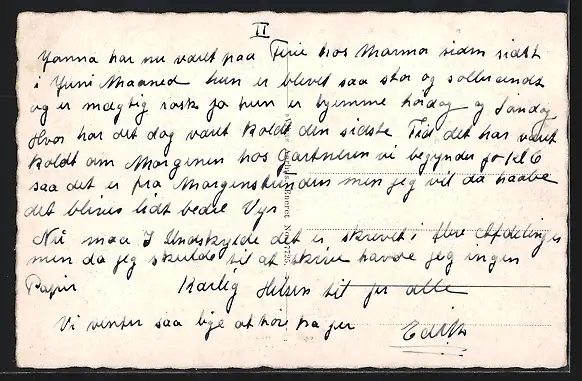 II
Janna har nu været paa Ferie hos Marmor siden sidst
i Juni Maaned hun er blevet saa stor og solbrændt
og er mægtig rask ja hun er hjemme Lørdag og Søndag
Hvor har det dog været koldt den sidste Tid det har været
koldt om Morgenen hos Gartneren vi begynder jo Kl 6
saa det er fra Morgenstunden men jeg vil da haabe
det bliver lidt bedre Vejr
Nu maa I Undskylde det er skrevet i flere Afdelinger
men da jeg skulde til at skrive havde jeg ingen
Papir Kærlig Hilsen til jer alle
Vi venter saa lige at høre fra jer Edith
Eneret No.